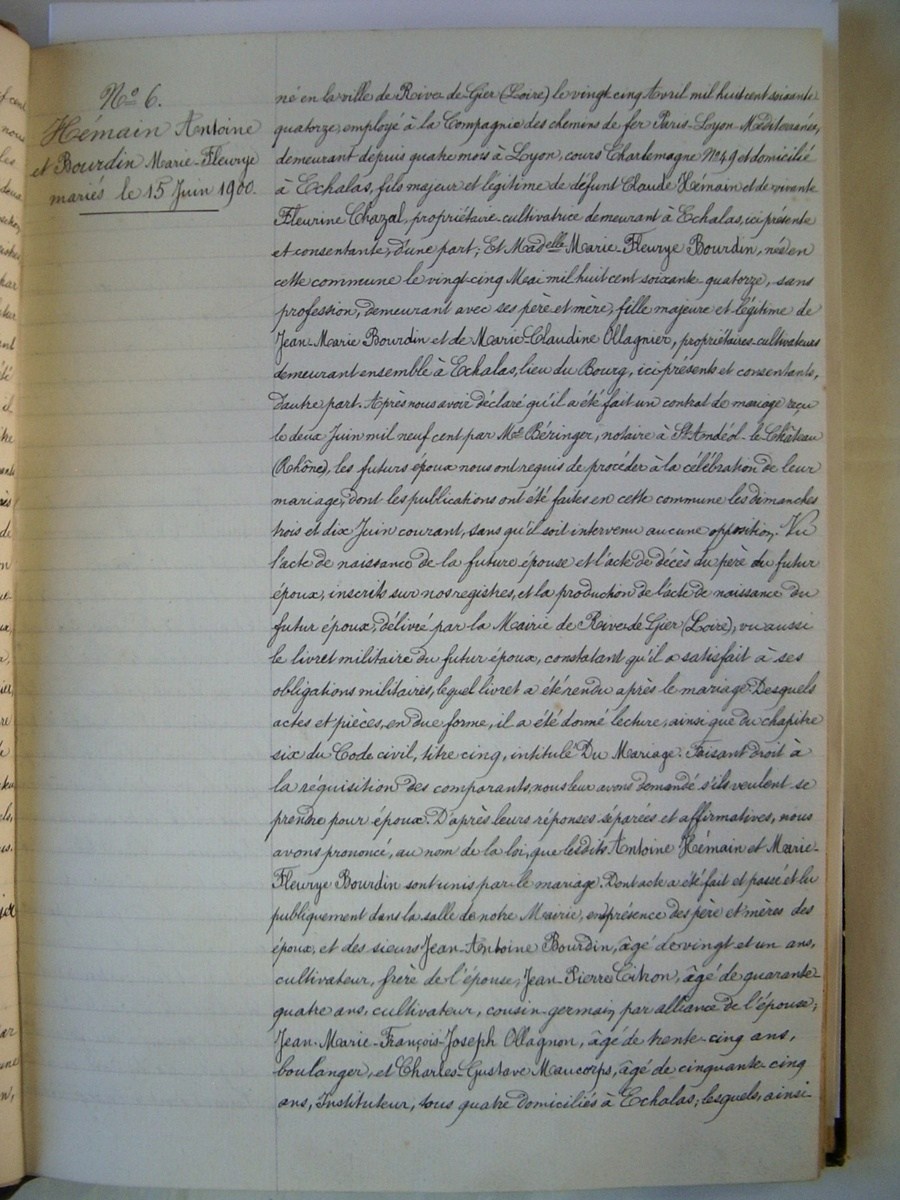 N° 6.
Hémain Antoine
et Bourdin Marie-Fleurye
mariés le 15 Juin 1900.
né en la ville de Rive de Gier (Loire) le vingt cinq Avril mil huit cent soixante
quatorze, employé à la Compagnie des chemins de fer Paris-Lyon-Méditerranée,
demeurant depuis quatre mois à Lyon, cours Charlemagne N° 49 et domicilié
à Echalas, fils majeur et légitime de défunt Claude Hémain et de vivante
Fleurine Chazal, propriétaire-cultivatrice demeurant à Echalas, ici présente
et consentante, d'une part; Et Mad.elle Marie-Fleurye Bourdin, née en
cette commune le vingt-cinq Mai mil huit cent soixante-quatorze, sans
profession, demeurant avec ses père et mère, fille majeure et légitime de
Jean-Marie Bourdin et de Marie Claudine Ollagnier, propriétaires-cultivateurs
demeurant ensemble à Echalas, lieu du Bourg, ici présents et consentants,
d'autre part. Après nous avoir déclaré qu'il a été fait un contrat de mariage reçu
le deux Juin mil neuf cent par Me Béringer, notaire à St Andéol-le-Château
(Rhône), les futurs époux nous ont requis de procéder à la célébration de leur
mariage, dont les publications ont été faites en cette commune les dimanches
trois et dix Juin courant, sans qu'il soit intervenu aucune opposition. Vu
l'acte de naissance de la future épouse et l'acte de décès du père du futur
époux, inscrits sur nos registres, et la production de l'acte de naissance du
futur époux, délivré par la Mairie de Rive de Gier (Loire), vu aussi
le livret militaire du futur époux, constatant qu'il a satisfait à ses
obligations militaires, lequel livret a été rendu après le mariage. Desquels
actes et pièces, en due forme, il a été donné lecture, ainsi que du chapitre
six du Code civil, titre cinq, intitulé Du Mariage. Faisant droit à
la réquisition des comparants, nous leur avons demandé s'ils veulent se
prendre pour époux. D'après leurs réponses séparées et affirmatives, nous
avons prononcé, au nom de la loi, que lesdits Antoine Hémain et Marie-
Fleurye Bourdin sont unis par le mariage. Dont acte a été fait et passé et lu
publiquement dans la salle de notre Mairie, en présence des père et mères des
époux, et des sieurs Jean-Antoine Bourdin, âgé de vingt et un ans,
cultivateur, frère de l'épouse, Jean Pierre Citron, âgé de quarante-
quatre ans, cultivateur, cousin-germain, par alliance de l'épouse;
Jean-Marie-François-Joseph Ollagnon, âgé de trente-cinq ans,
boulanger, et Charles-Gustave Maucorps, âgé de cinquante-cinq
ans, Instituteur, tous quatre domiciliés à Echalas; lesquels, ainsi